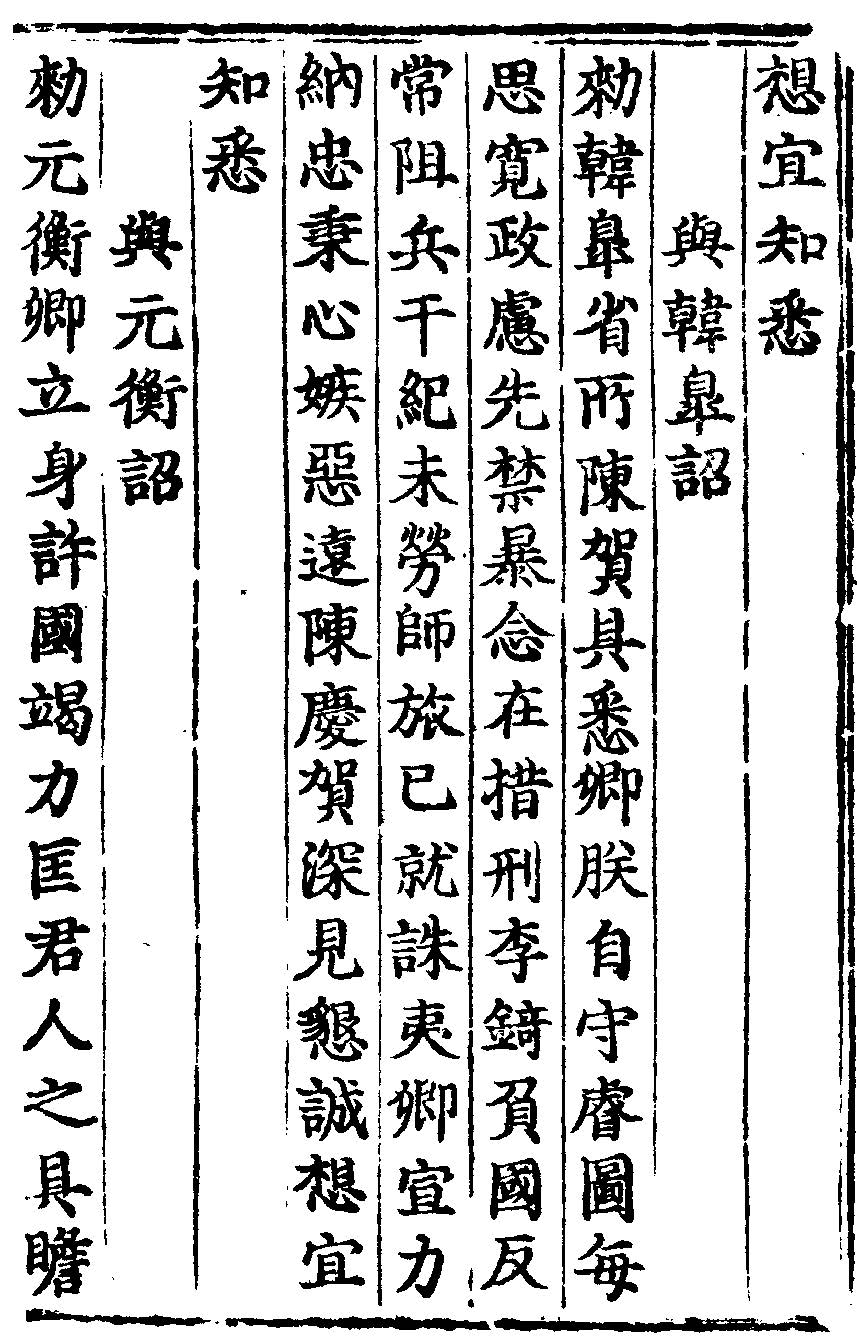 想宜知悉
與韓皐詔
勑韓皐省所陳賀具悉卿朕自守睿圖每
思寛政慮先禁暴念在措刑李錡負國反
常阻兵干紀未勞師旅已就誅夷卿宣力
納忠秉心嫉惡遠陳慶賀深見懇誠想宜
知悉
與元衡詔
勑元衡卿立身許國竭力匡君人之具瞻